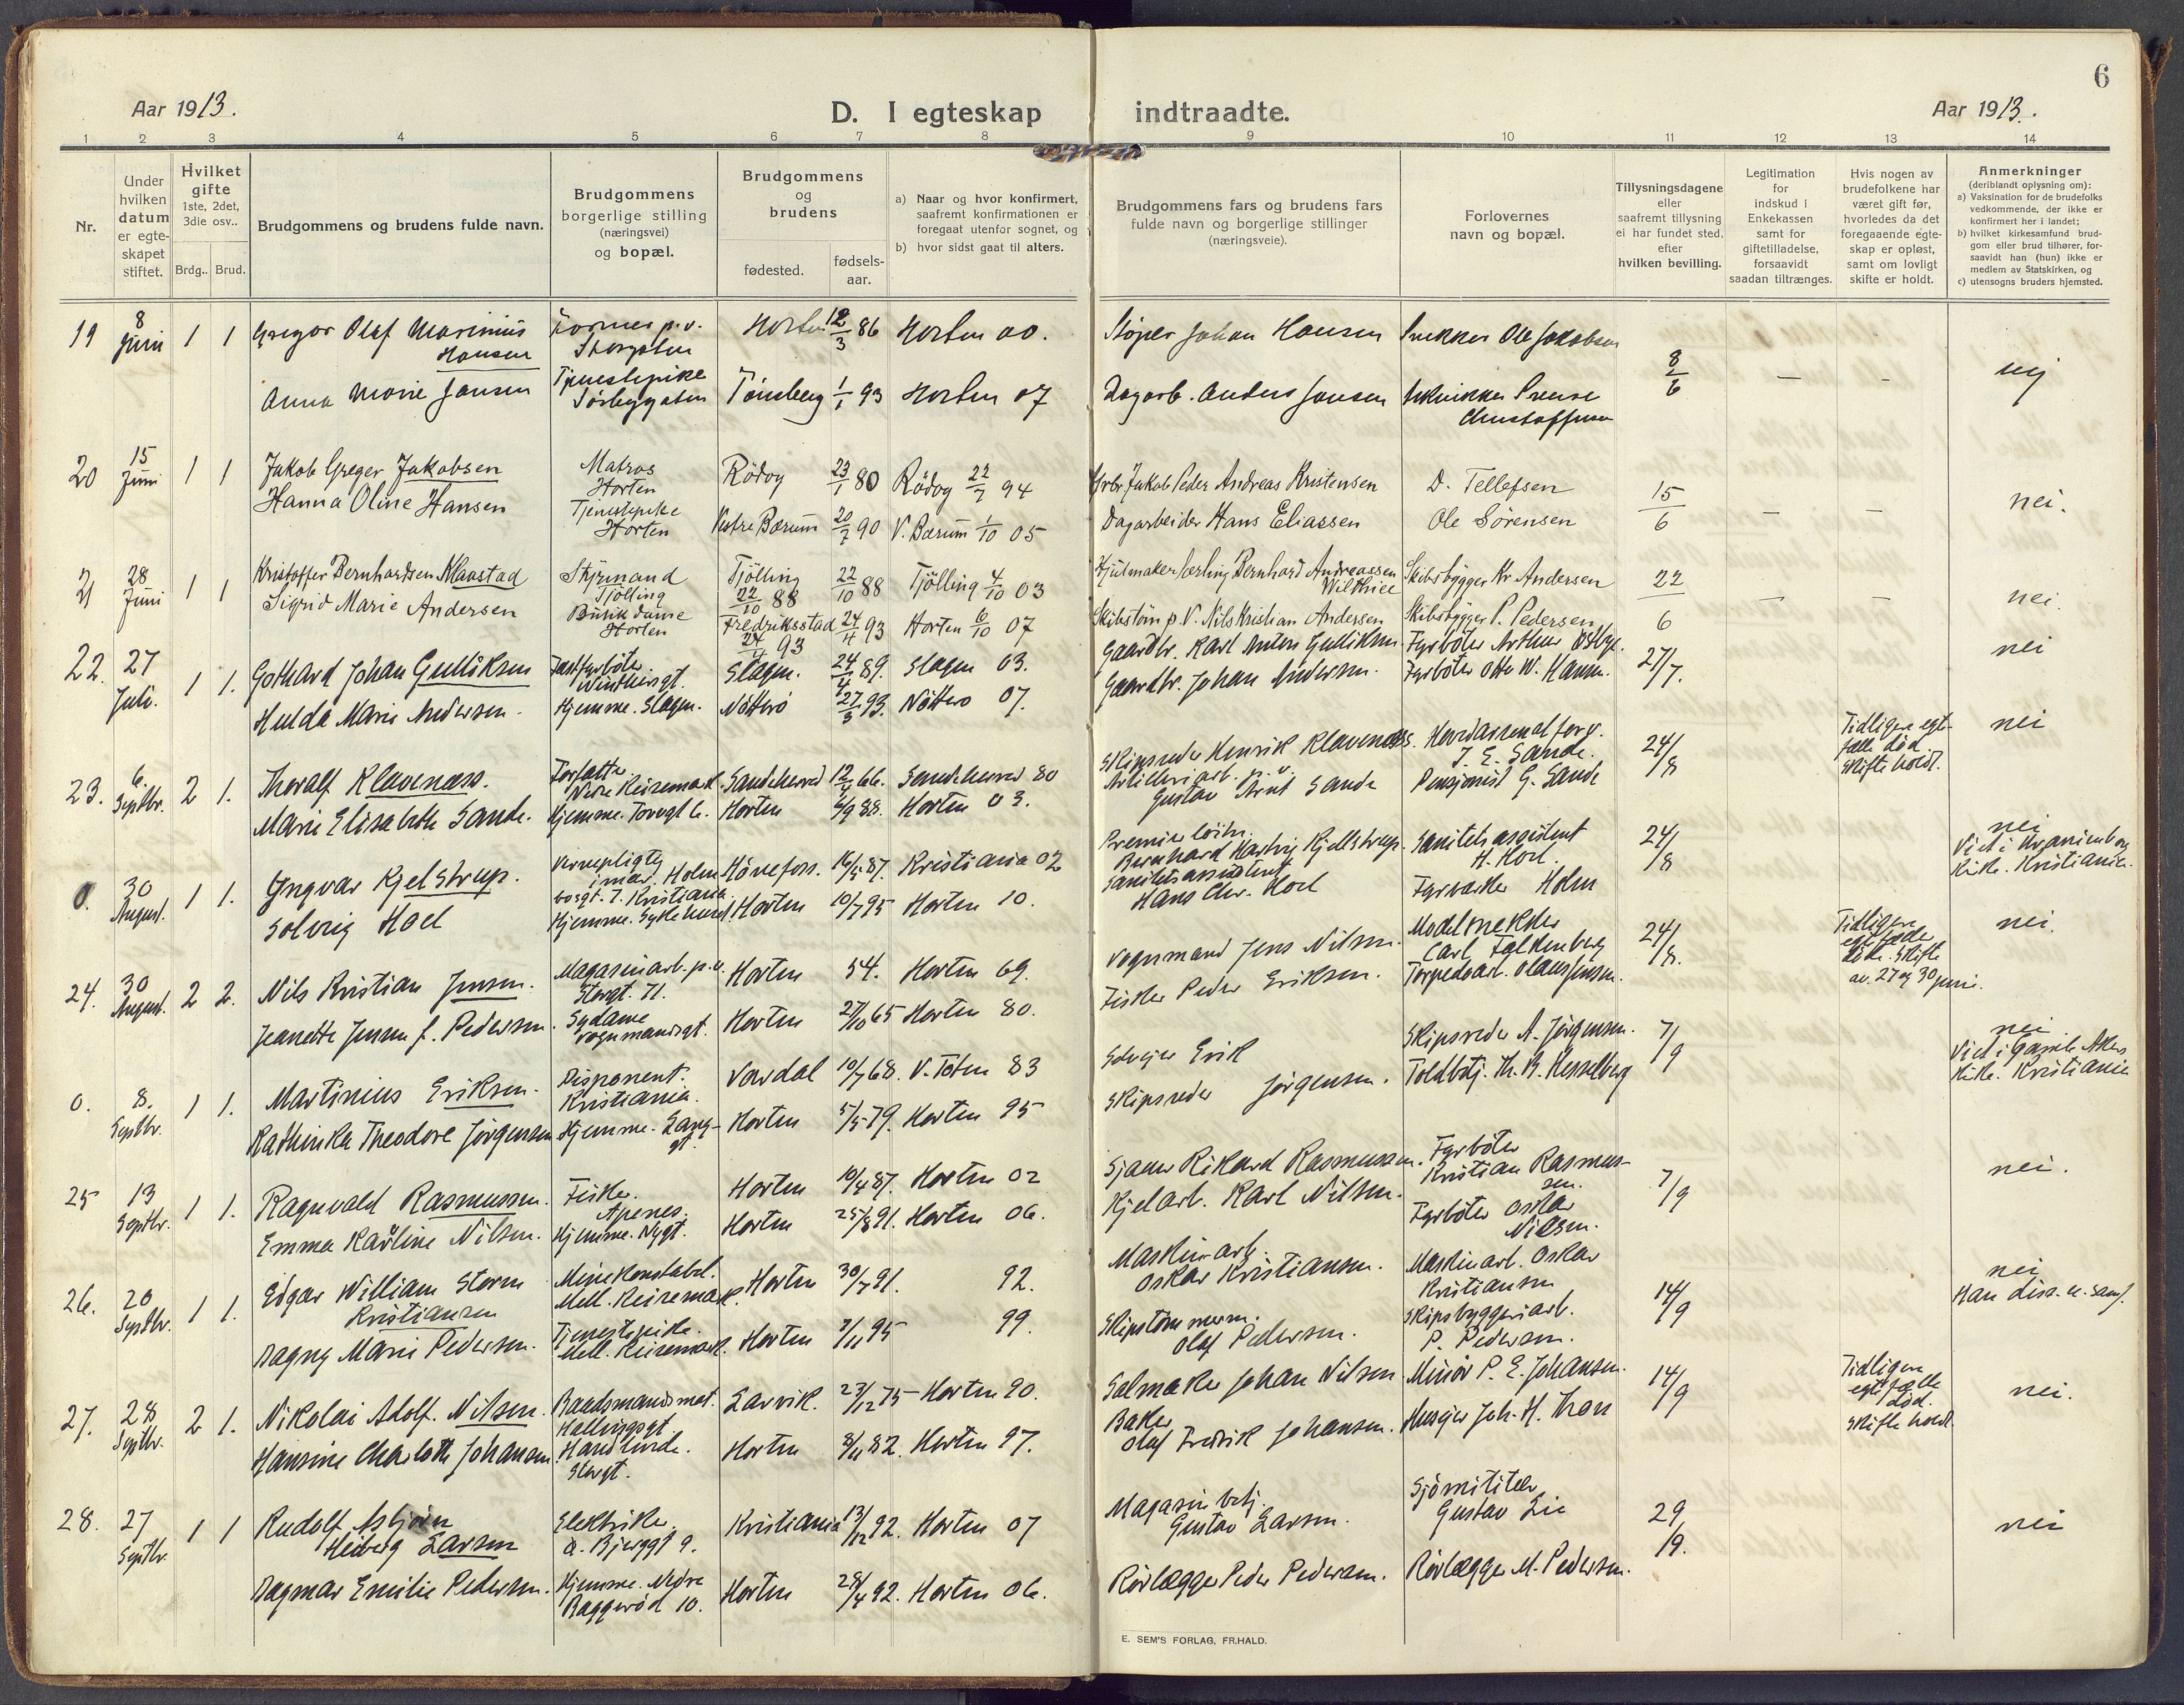 6
Aar 1913.
D. I egteskap indtraadte.
Aar 1913.
1 2 3 4 5 6 7 8 9 10 11 12 13 14
Nr.
Under hvilken datum er egte-skapet stiftet.
Hvilket gifte 1ste, 2det, 3die osv..
Brdg.. Brud.
Brudgommens og brudens fulde navn.
Brudgommens borgerlige stilling (næringsvei) og bopæl.
Brudgommens og brudens
fødested.
fødsels-aar.
a) Naar og hvor konfirmert, saafremt konfirmationen er foregaat utenfor sognet, og
b) hvor sidst gaat til alters.
Brudgommens fars og brudens fars fulde navn og borgerlige stillinger (næringsveie).
Forlovernes navn og bopæl.
Tillysningsdagene eller saafremt tillysning ei har fundet sted, efter hvilken bevilling.
Legitimation for indskud i Enkekassen samt for giftetilladelse, forsaavidt saadan tiltrænges.
Hvis nogen av brudefolkene har været gift før, hvorledes da det foregaaende egte-skap er opløst, samt om lovligt skifte er holdt.
Anmerkninger (deriblandt oplysning om):
a) Vaksination for de brudefolks vedkommende, der ikke er konfirmert her i landet;
b) hvilket kirkesamfund brud-gom eller brud tilhører, for-saavidt han (hun) ikke er medlem av Statskirken, og
c) utensogns bruders hjemsted.
19 8 Juni 1 1 Gregor Olaf Marinius Hansen Former p.v. Storgaten Horten 12/3 86 Horten 00. Støper Johan Hansen Snekker Ole Jakobsen 8/6 — - nej
Anna Marie Jansen Tjenestepike Tønsberg 1/1 93 Horten 07 Dagarb. Anders Jansen
20 15 Juni 1 1 Jakob Greger Jakobsen Matros Horten Rödøy 23/1 80 Rödøy 22/7 94 Jakob Peder Andreas Kristensen D. Tellefsen 15/6 — — nei.
Hanna Oline Hansen Tjenestepike Horten Vestre Bærum 20/7 90 V. Bærum 1/10 05 Dagarbeider Hans Eliassen Ole Sörensen
21 28 Juni 1 1 Kristoffer Bernhardsen Klaastad Styrmand Tjölling Tjölling 22/10 88 22/10 88 Tjölling 4/10 03 Hjulmaker Bernhard Andreassen Skibsbygger Kr Andersen 22/6 — — nei.
Sigrid Marie Andersen Butikdame Horten Fredriksstad 24/4 93 24/4 93 Horten 6/10 07 Skibstöm. p.V. Nils Kristian Andersen Skibsbygger P. Pedersen
22. 27 Juli. 1 1. Gothard Johan Gulliksen Slagen. 24/4 89. Slagen 03. Gaardbr. Karl Anton Gulliksen. Fyrböter Arthur 27/7. nei
Hulda Marie Andersen. Hjemme. Slagen. Nötterö 27/3 93. Nötterö 07. Gaardbr. Johan Andersen. Fyrböter Otto W. Hansen.
23. 6. Septbr. 2 1. Thoralf Klavenæss. Forfatter Nedre Keisemark. Sandeherred 12/4 66. Sandeherred 80 Skipsreder Henrik Klavenæss. T. E. Sande. 24/8 Tidligere egtefælle död skifte holdt. nei
Marie Elisabeth Sande. Hjemme. Torvgt 6. Horten 6/9 88. Horten 03. Gustav Arnt Sande Pensjonist G. Sande
0. 30 August. 1 1. Yngvar Kjelstrup. Vernepligtig Hønefoss. 16/5 87. Kristiania 02 Premierløitn. Bernhard Hartvig Kjellstrup. Sanitetsassistent H. Hoel. 24/8 nei Viet i Uranienborg Kirke. Kristiania.
Solveig Hoel Hjemme. Horten 10/7 95 Horten 10. Sanitetsassistent Hans Chr. Hoel Fyrværker Holm
24. 30 August. 2 2. Nils Kristian Jensen. Magasinarb. p.v. Storgt. 71. Horten 54. Horten 69. Vognmand Jens Nilsen. Modelsnekker Carl Falkenberg 24/8. Tidligere egtefæller døde. Skifte av. 27 og 30 juni. nei.
Jeanette Jensen f. Pedersen. Sydame Vognmandsgt. Horten 27/10 65 Horten 80. Fisker Peder Eriksen. Torpedoarb. Olaus Jensen.
0. 8. Septbr. 1 1. Martinius Eriksen. Disponent. Kristiania. Vardal 10/7 68. V. Toten 83 Selveier Erik Skipsreder A. Jörgensen. 7/9 nei Viet i Gamle Akers Kirke. Kristiania
Kathinka Theodore Jörgensen Hjemme. Langgt. Horten 5/5 79. Horten 95 Skipsreder Jörgensen. Toldbetj. Th. B. Hesselberg
25 13 Septbr. 1 1. Ragnvald Rasmussen. Fisker. Apenes. Horten 10/4 87. Horten 02 Sjauer Rikard Rasmussen. Fyrböter Kristian Rasmussen. 7/9 nei.
Emma Karline Nilsen. Hjemme. Nygt. Horten 25/8 91. Horten 06. Kjelarb. Karl Nilsen. Fyrböter Oskar Nilsen.
26. 20 Septbr. 1 1. Edgar William Storm Kristiansen Minekonstabel. Mell. Keisemark. Horten 30/7 91. 92. Maskinarb. Oskar Kristiansen. Maskinarb. Oskar Kristiansen 14/9 nei Han diss. u. samf.
Dagny Marie Pedersen. Tjenestepike. Mell. Keisemark. Horten 7/11 95 99. Skipstömmerm. Olaf Pedersen. Skipsbyggeriarb. P. Pedersen.
27. 28 Septbr. 2 1. Nikolai Adolf. Nilsen. Baadsmandsmat. Hellvigsgt Larvik. 27/12 75 Horten 90. Salmaker Johan Nilsen. Minör P. E. Johansen. 14/9 Tidligere egtefælle död. Skifte holdt nei.
Hansine Charlotte Johansen Handlende. Storgt. Horten 8/11 82. Horten 97. Baker Olaf Fredrik Johansen. Huseier Joh. H. Thon
28. 27 Septbr. 1 1 Rudolf Asbjörn Heiberg Larsen Elektriker. Ø. Bjerggt 9. Kristiania 13/12 92. Horten 07 Magasinbetj. Gustav Larsen. Sjömilitær Gustav Lie 29/9. nei
Dagmar Emilie Pedersen. Hjemme. Nedre Baggeröd 10. Horten 28/4 92. Horten 06. Rörlægger Peder Pedersen. Rörlægger M. Pedersen.
E. SEM'S FORLAG, FR.HALD.